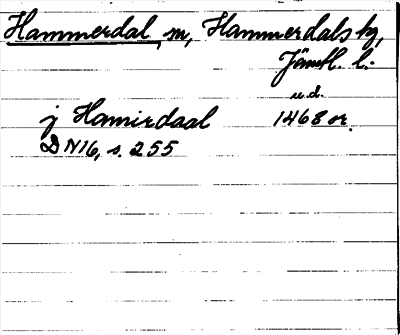 Hammerdal sn, Hammerdals tg,
Jämtl. l.
u.d.
j Hamirdaal 1468 or.
DN16, s. 255